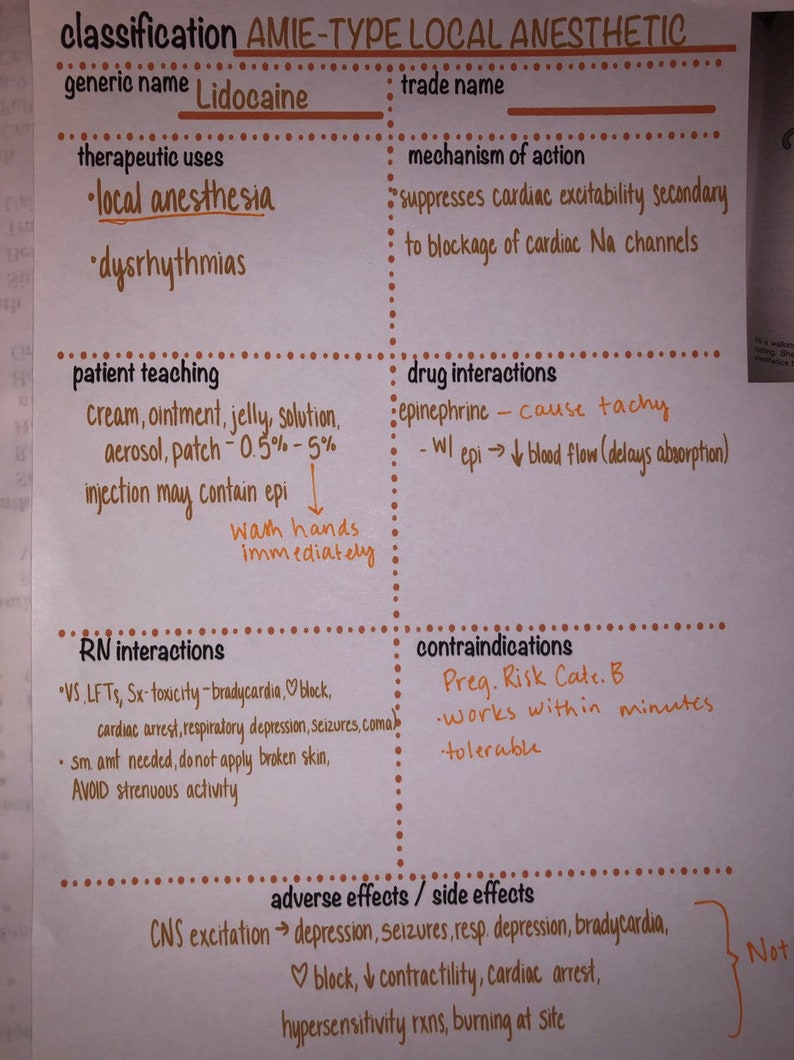 classification AMIE-TYPE LOCAL ANESTHETIC
generic name Lidocaine
trade name
therapeutic uses
•local anesthesia
•dysrhythmias
mechanism of action
•suppresses cardiac excitability secondary
to blockage of cardiac Na channels
patient teaching
cream, ointment, jelly, solution,
aerosol, patch - 0.5% - 5%
injection may contain epi
wash hands
immediately
drug interactions
epinephrine - cause tachy
- W/ epi → ↓ blood flow (delays absorption)
RN interactions
•VS, LFTs, Sx-toxicity-bradycardia, ♡ block,
cardiac arrest, respiratory depression, seizures, coma)
• sm. amt needed, do not apply broken skin,
AVOID strenuous activity
contraindications
Preg. Risk Cate. B
•works within minutes
•tolerable
adverse effects / side effects
CNS excitation → depression, seizures, resp. depression, bradycardia,
♡ block, ↓ contractility, cardiac arrest,
hypersensitivity rxns, burning at site
Not